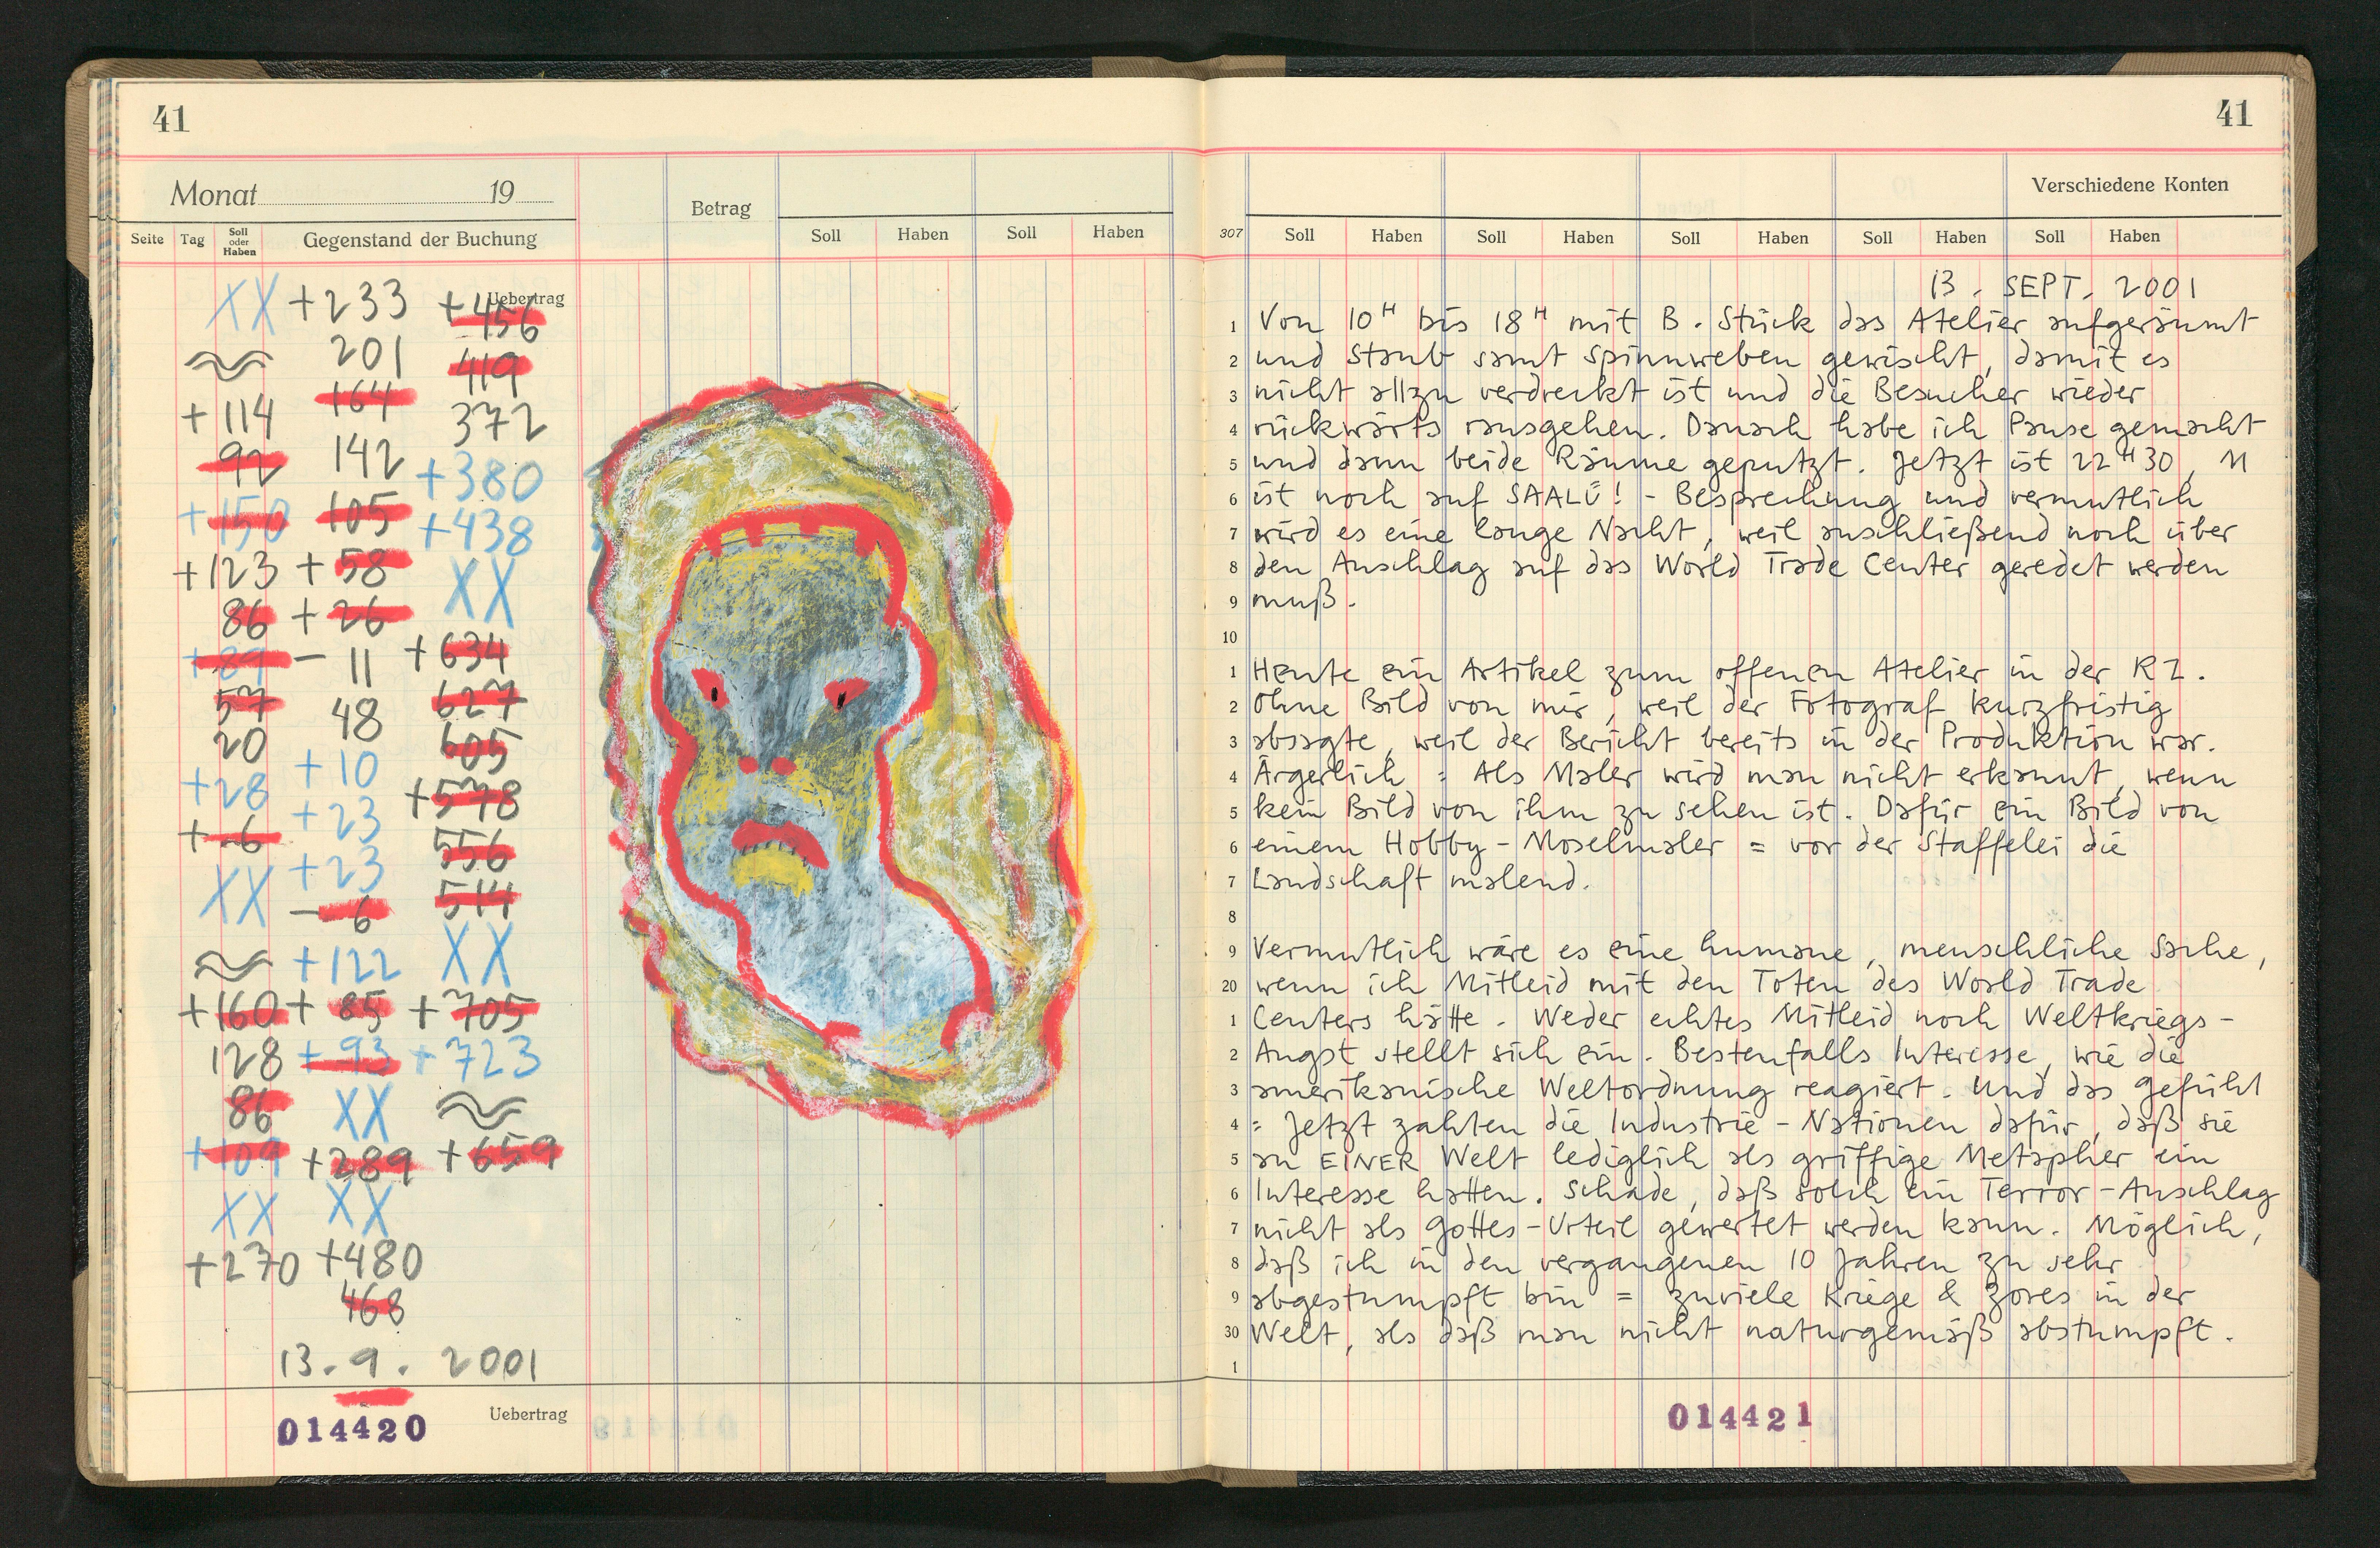 41
Monat 19
Betrag
Seite Tag Soll oder Haben Gegenstand der Buchung Soll Haben Soll Haben
Uebertrag
XX +233 +456
201 419
+114 164 372
92 142 +380
+150 105 +438
+123 +58 XX
86 +26 +634
+89 - 11 627
57 48 605
20 +10 +578
+28 +23 556
+-6 +23 514
XX - 6 XX
+122
+160 + 85 + 705
128 + 93 + 723
86 XX
+109 +289 +659
XX XX
+270 +480
468
13. 9. 2001
Uebertrag
014420
41
Verschiedene Konten
307 Soll Haben Soll Haben Soll Haben Soll Haben Soll Haben
13. SEPT. 2001
1 Von 10H bis 18H mit B. Stück das Atelier aufgeräumt
2 und Staub samt Spinnweben gewischt, damit es
3 nicht allzu verdreckt ist und die Besucher wieder
4 rückwärts rausgehen. Danach habe ich Pause gemacht
5 und dann beide Räume geputzt. Jetzt ist 22H30, M
6 ist noch auf SAALÜ! - Besprechung und vermutlich
7 wird es eine lange Nacht, weil anschließend noch über
8 den Anschlag auf das World Trade Center geredet werden
9 muß.
10
1 Heute ein Artikel zum offenen Atelier in der RZ.
2 Ohne Bild von mir, weil der Fotograf kurzfristig
3 absagte, weil der Bericht bereits in der Produktion war.
4 Ärgerlich : Als Maler wird man nicht erkannt, wenn
5 kein Bild von ihm zu sehen ist. Dafür ein Bild von
6 einem Hobby-Moselmaler = vor der Staffelei die
7 Landschaft malend.
8
9 Vermutlich wäre es eine humane, menschliche Sache,
20 wenn ich Mitleid mit den Toten des World Trade
1 Centers hätte. Weder echtes Mitleid noch Weltkriegs-
2 Angst stellt sich ein. Bestenfalls Interesse, wie die
3 amerikanische Weltordnung reagiert. Und das Gefühl
4 : Jetzt zahlten die Industrie-Nationen dafür, daß sie
5 an EINER Welt lediglich als griffige Metapher ein
6 Interesse hatten. Schade, daß solch ein Terror-Anschlag
7 nicht als Gottes-Urteil gewertet werden kann. Möglich,
8 daß ich in den vergangenen 10 Jahren zu sehr
9 abgestumpft bin = zuviele Kriege & Zores in der
30 Welt, als daß man nicht naturgemäß abstumpft.
1
014421